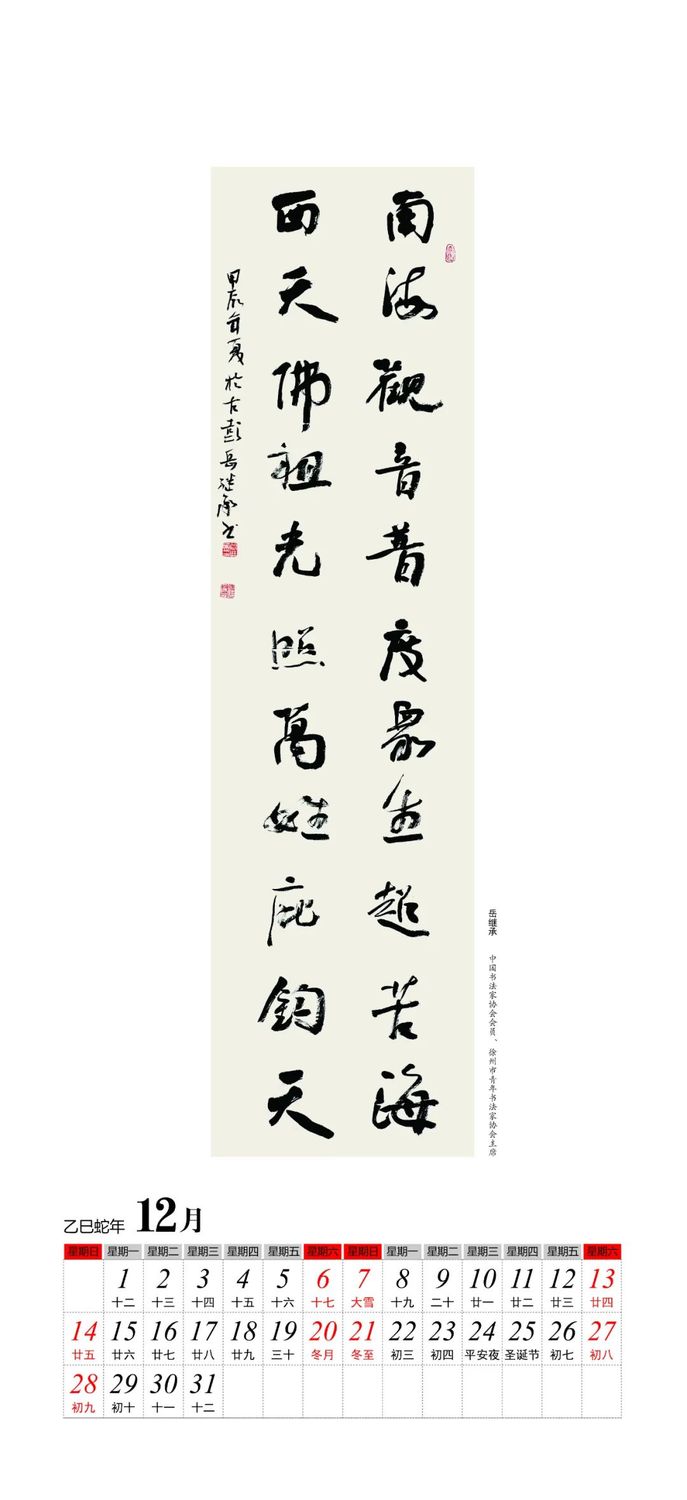 南海觀音普度眾生超苦海
西天佛祖光照萬姓庇鈞天
甲辰年夏於古彭岳继承书
岳继承 中国书法家协会会员、徐州市青年书法家协会主席
乙巳蛇年 12月
星期日 星期一 星期二 星期三 星期四 星期五 星期六 星期日 星期一 星期二 星期三 星期四 星期五 星期六
1 2 3 4 5 6 7 8 9 10 11 12 13
十二 十三 十四 十五 十六 十七 大雪 十九 二十 廿一 廿二 廿三 廿四
14 15 16 17 18 19 20 21 22 23 24 25 26 27
廿五 廿六 廿七 廿八 廿九 三十 冬月 冬至 初三 初四 平安夜 圣诞节 初七 初八
28 29 30 31
初九 初十 十一 十二